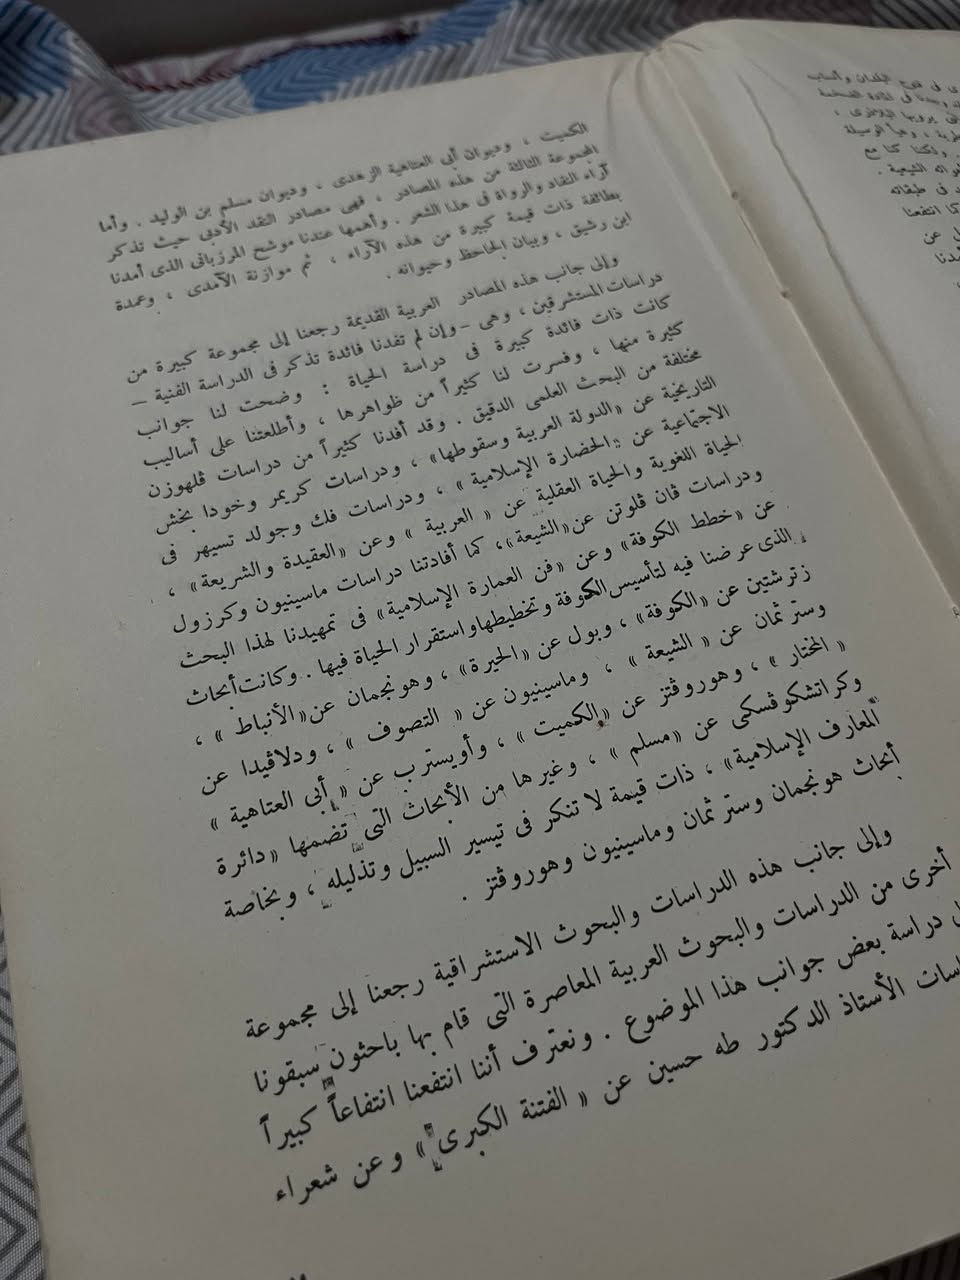 الكميت ، وديوان أبى العتاهية الزهدى ، وديوان مسلم بن الوليد . وأما
المجموعة الثالثة من هذه المصادر ، فهى مصادر النقد الأدبى حيث تذكر
آراء النقاد والرواة فى هذا الشعر . وأهمها عندنا موشح المرزبانى الذى أمدنا
بطائفة ذات قيمة كبيرة من هذه الآراء ، ثم موازنة الآمدى ، وعمدة
ابن رشيق ، وبيان الجاحظ وحيوانه .
وإلى جانب هذه المصادر العربية القديمة رجعنا إلى مجموعة كبيرة من
دراسات المستشرقين ، وهى – وإن لم تفدنا فائدة تذكر فى الدراسة الفنية –
كانت ذات فائدة كبيرة فى دراسة الحياة : وضحت لنا جوانب
كثيرة منها ، وفسرت لنا كثيراً من ظواهرها ، وأطلعتنا على أساليب
مختلفة من البحث العلمى الدقيق . وقد أفدنا كثيراً من دراسات ڤلهوزن
التاريخية عن «الدولة العربية وسقوطها» ، ودراسات كريمر وخودا بخش
الاجتماعية عن «الحضارة الإسلامية» ، ودراسات فك وجولد تسيهر فى
الحياة اللغوية والحياة العقلية عن « العربية » وعن «العقيدة والشريعة» ،
ودراسات ڤان ڤلوتن عن «الشيعة»، كما أفادتنا دراسات ماسينيون وكرزول
عن «خطط الكوفة» وعن «فن العمارة الإسلامية» فى تمهيدنا لهذا البحث
الذى عرضنا فيه لتأسيس الكوفة وتخطيطها واستقرار الحياة فيها . وكانت أبحاث
زترشتين عن «الكوفة» ، وبول عن «الحيرة» ، وهونجمان عن «الأنباط » ،
وستر ثمان عن « الشيعة » ، وماسينيون عن « التصوف » ، ودلاڤيدا عن
« المختار » ، وهوروڤتز عن «الكميت » ، وأويسترب عن « أبى العتاهية »
وكراتشكوفسكى عن «مسلم » ، وغيرها من الأبحاث التى تضمها «دائرة
المعارف الإسلامية» ، ذات قيمة لا تنكر فى تيسير السبيل وتذليله ، وبخاصة
أبحاث هونجمان وستر ثمان وماسينيون وهوروڤتز .
وإلى جانب هذه الدراسات والبحوث الاستشراقية رجعنا إلى مجموعة
أخرى من الدراسات والبحوث العربية المعاصرة التى قام بها باحثون سبقونا
دراسة بعض جوانب هذا الموضوع . ونعترف أننا انتفعنا انتفاعاً كبيراً
الأستاذ الدكتور طه حسين عن « الفتنة الكبرى » وعن شعراء
فى فتوح البلدان وأنساب
فى المادة الضخمة
يرويها البلاذرى ،
الوسيلة
ولكننا كنا مع
الشيعية .
فى طبقاته
كما انتفعنا
عن